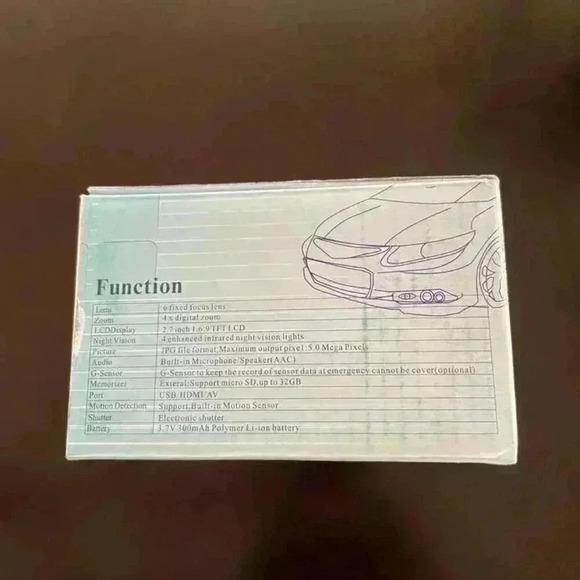 Function
Lens 6 fixed focus lens
Zoom 4 x digital zoom
LCDDisplay 2.7 inch 1.6:9 TFT LCD
Night Vision 4 enhanced infrared night vision lights
Picture JPG file format,Maximum output pixel:5.0 Mega Pixels
Audio Built-in Microphone/Speaker(AAC)
G-Sensor G-Sensor to keep the record of sensor data at emergency cannot be cover(optional)
Memorizer Exteral:Support micro SD,up to 32GB
Port USB/HDMI/AV
Motion Detection Support,Built-in Motion Sensor
Shutter Electronic shutter
Battery 3.7V 300mAh Polymer Li-ion battery